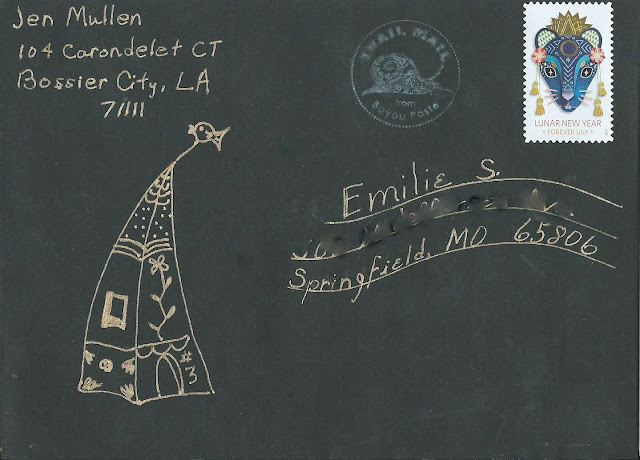 Jen Mullen
104 Carondelet CT
Bossier City, LA
71111
SNAIL MAIL
from
Bayou Posts
LUNAR NEW YEAR
• FOREVER USA •
Emilie S.
Springfield, MO 65806
#3